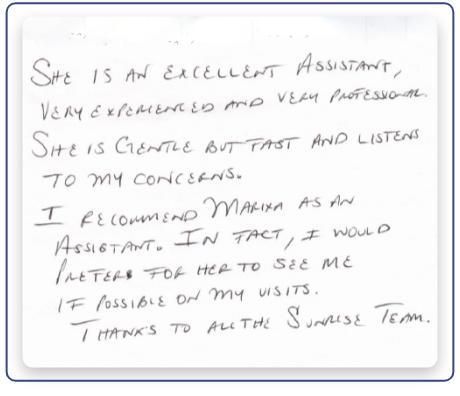 She is an excellent Assistant,
very experienced and very professional.
She is Gentle but fast and listens
to my concerns.
I recommend Marixa as an
Assistant. In fact, I would
prefer for her to see me
if possible on my visits.
Thanks to all the Sunrise Team.